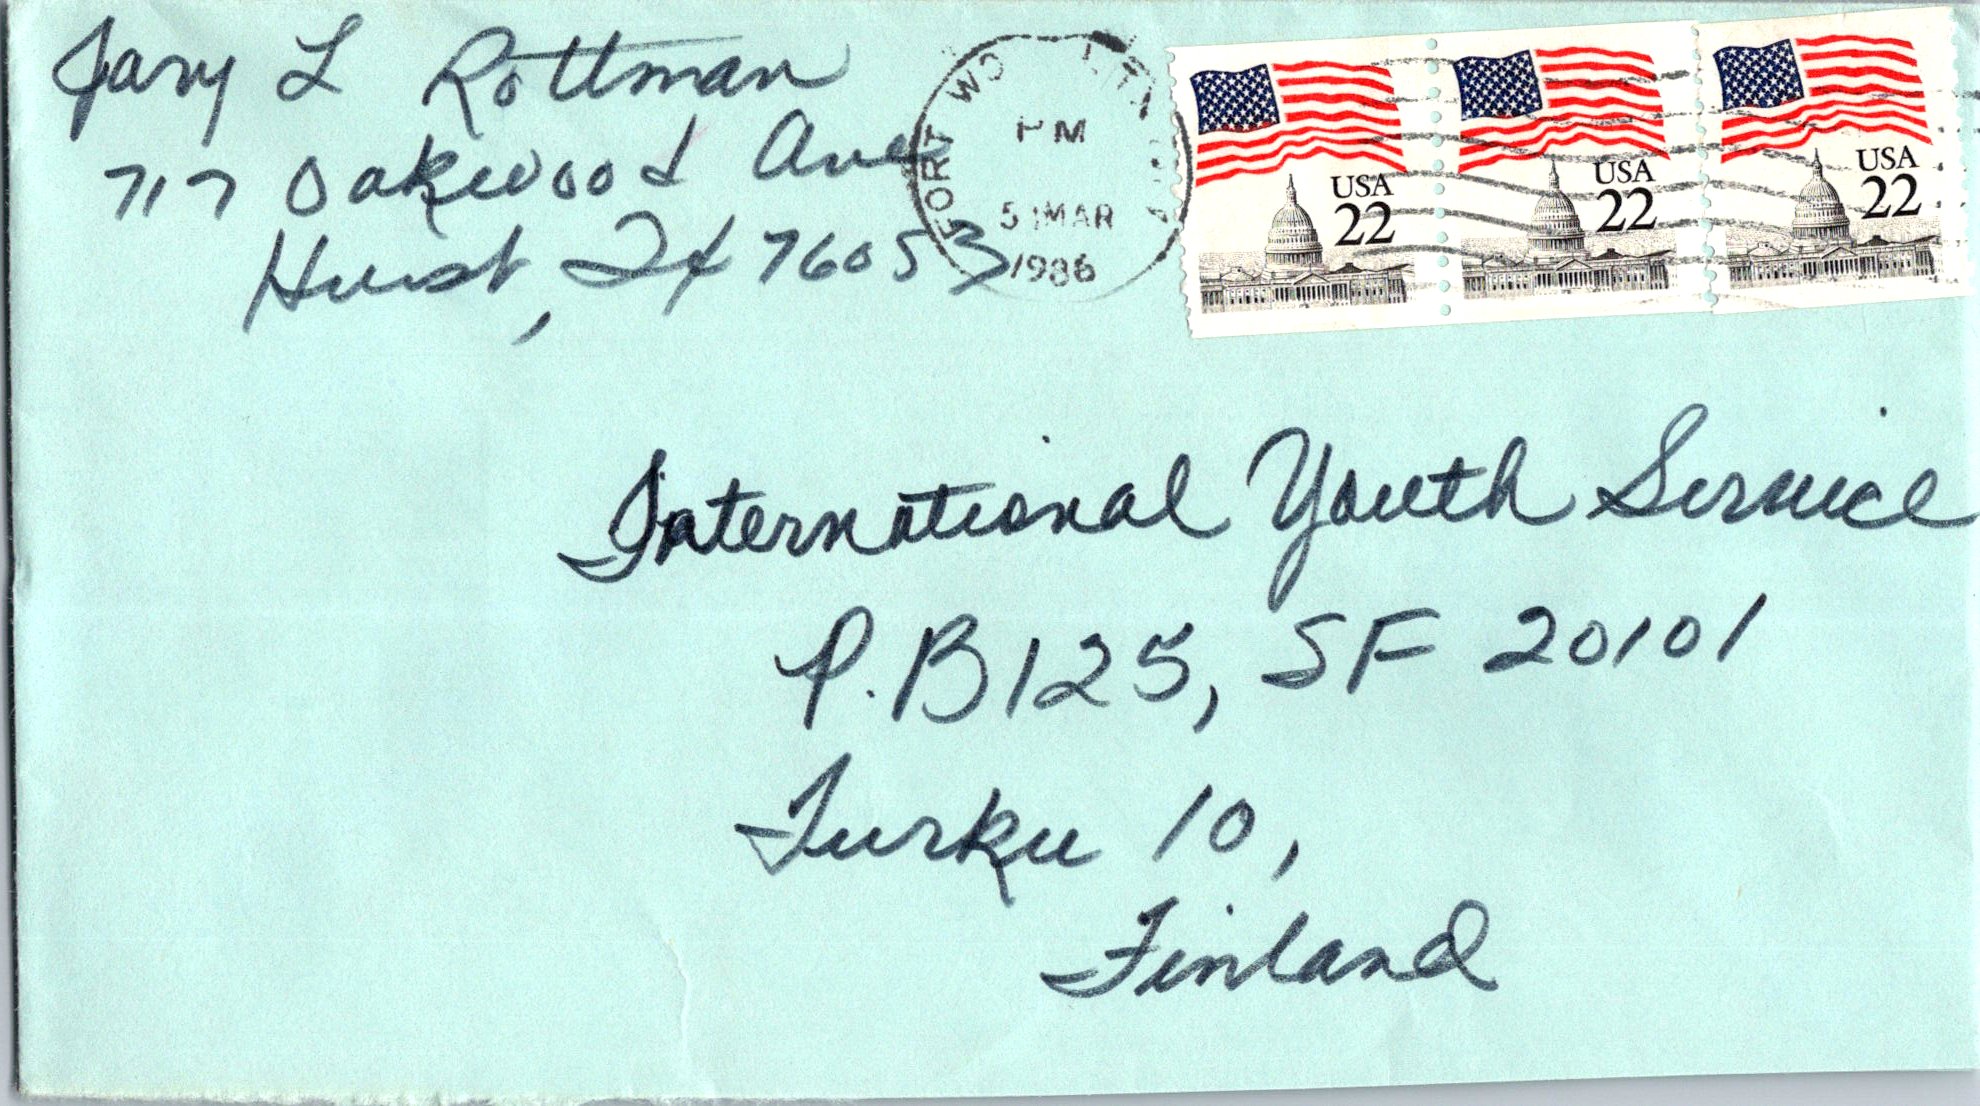 Gary L Rottman
717 Oakwood Ave
Hurst, Tx 76053
FORT WO
PM
5 MAR
1986
USA
22
USA
22
USA
22
International Youth Service
P.B 125, SF 20101
Turku 10,
Finland